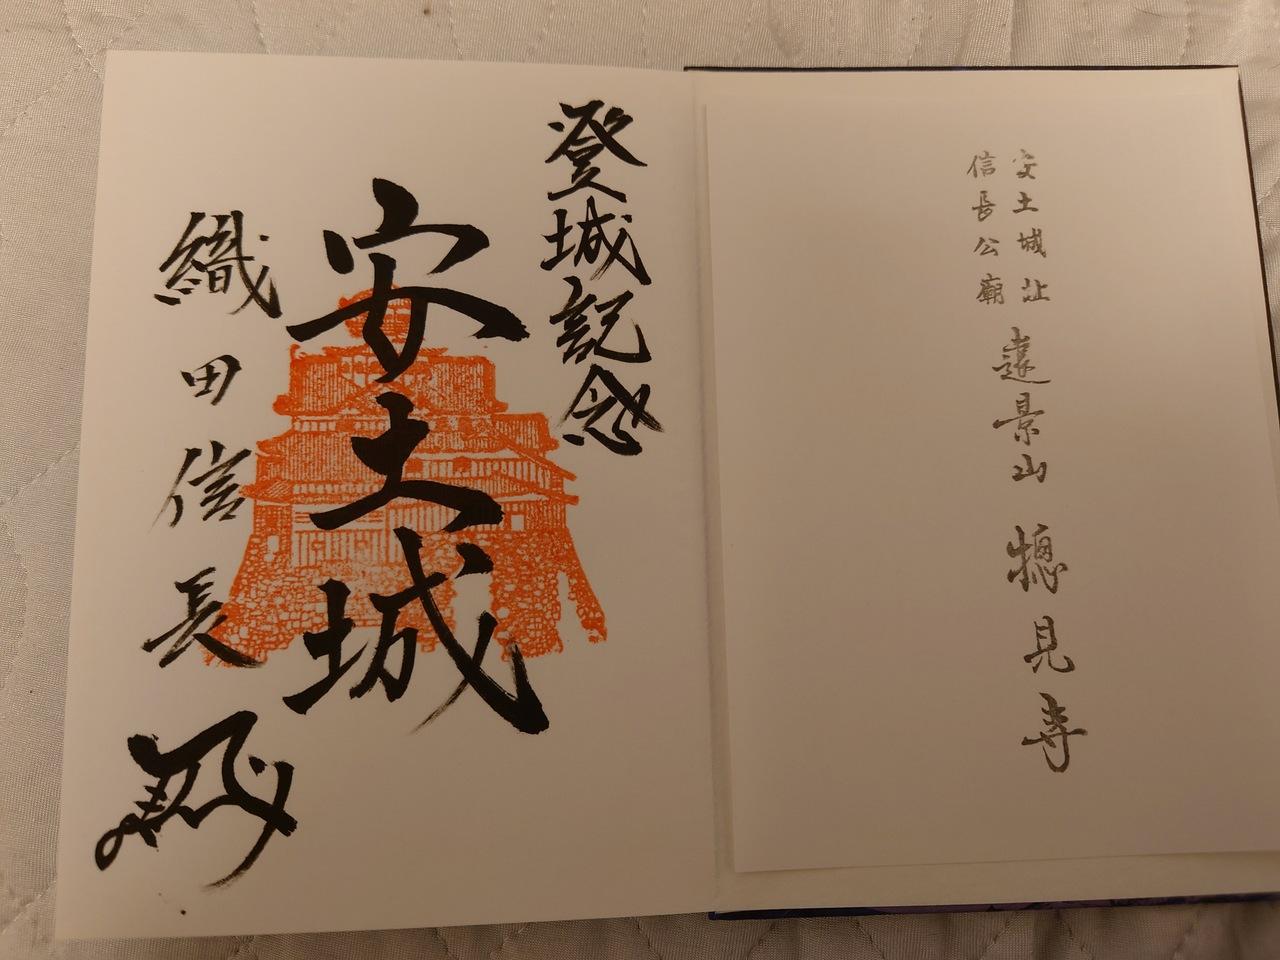 安土城址
信長公廟
遠景山 摠見寺
登城記念
安土城
織田信長